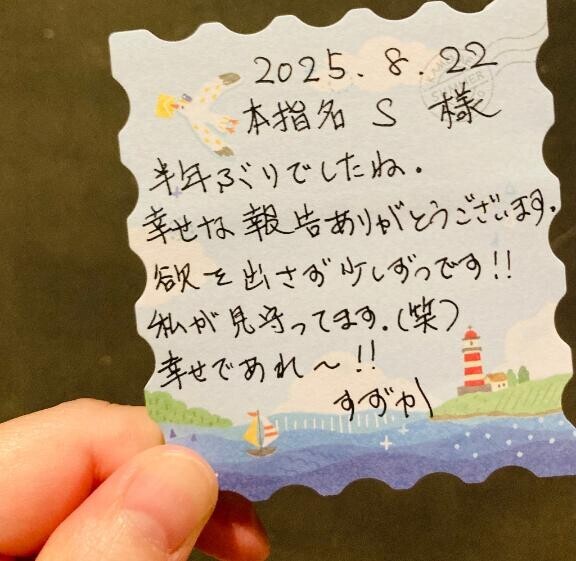 2025.8.22
本指名 S 様
半年ぶりでしたね.
幸せな報告ありがとうございます.
欲を出さず少しずつです!!
私が見守ってます.(笑)
幸せであれ〜!!
すずか